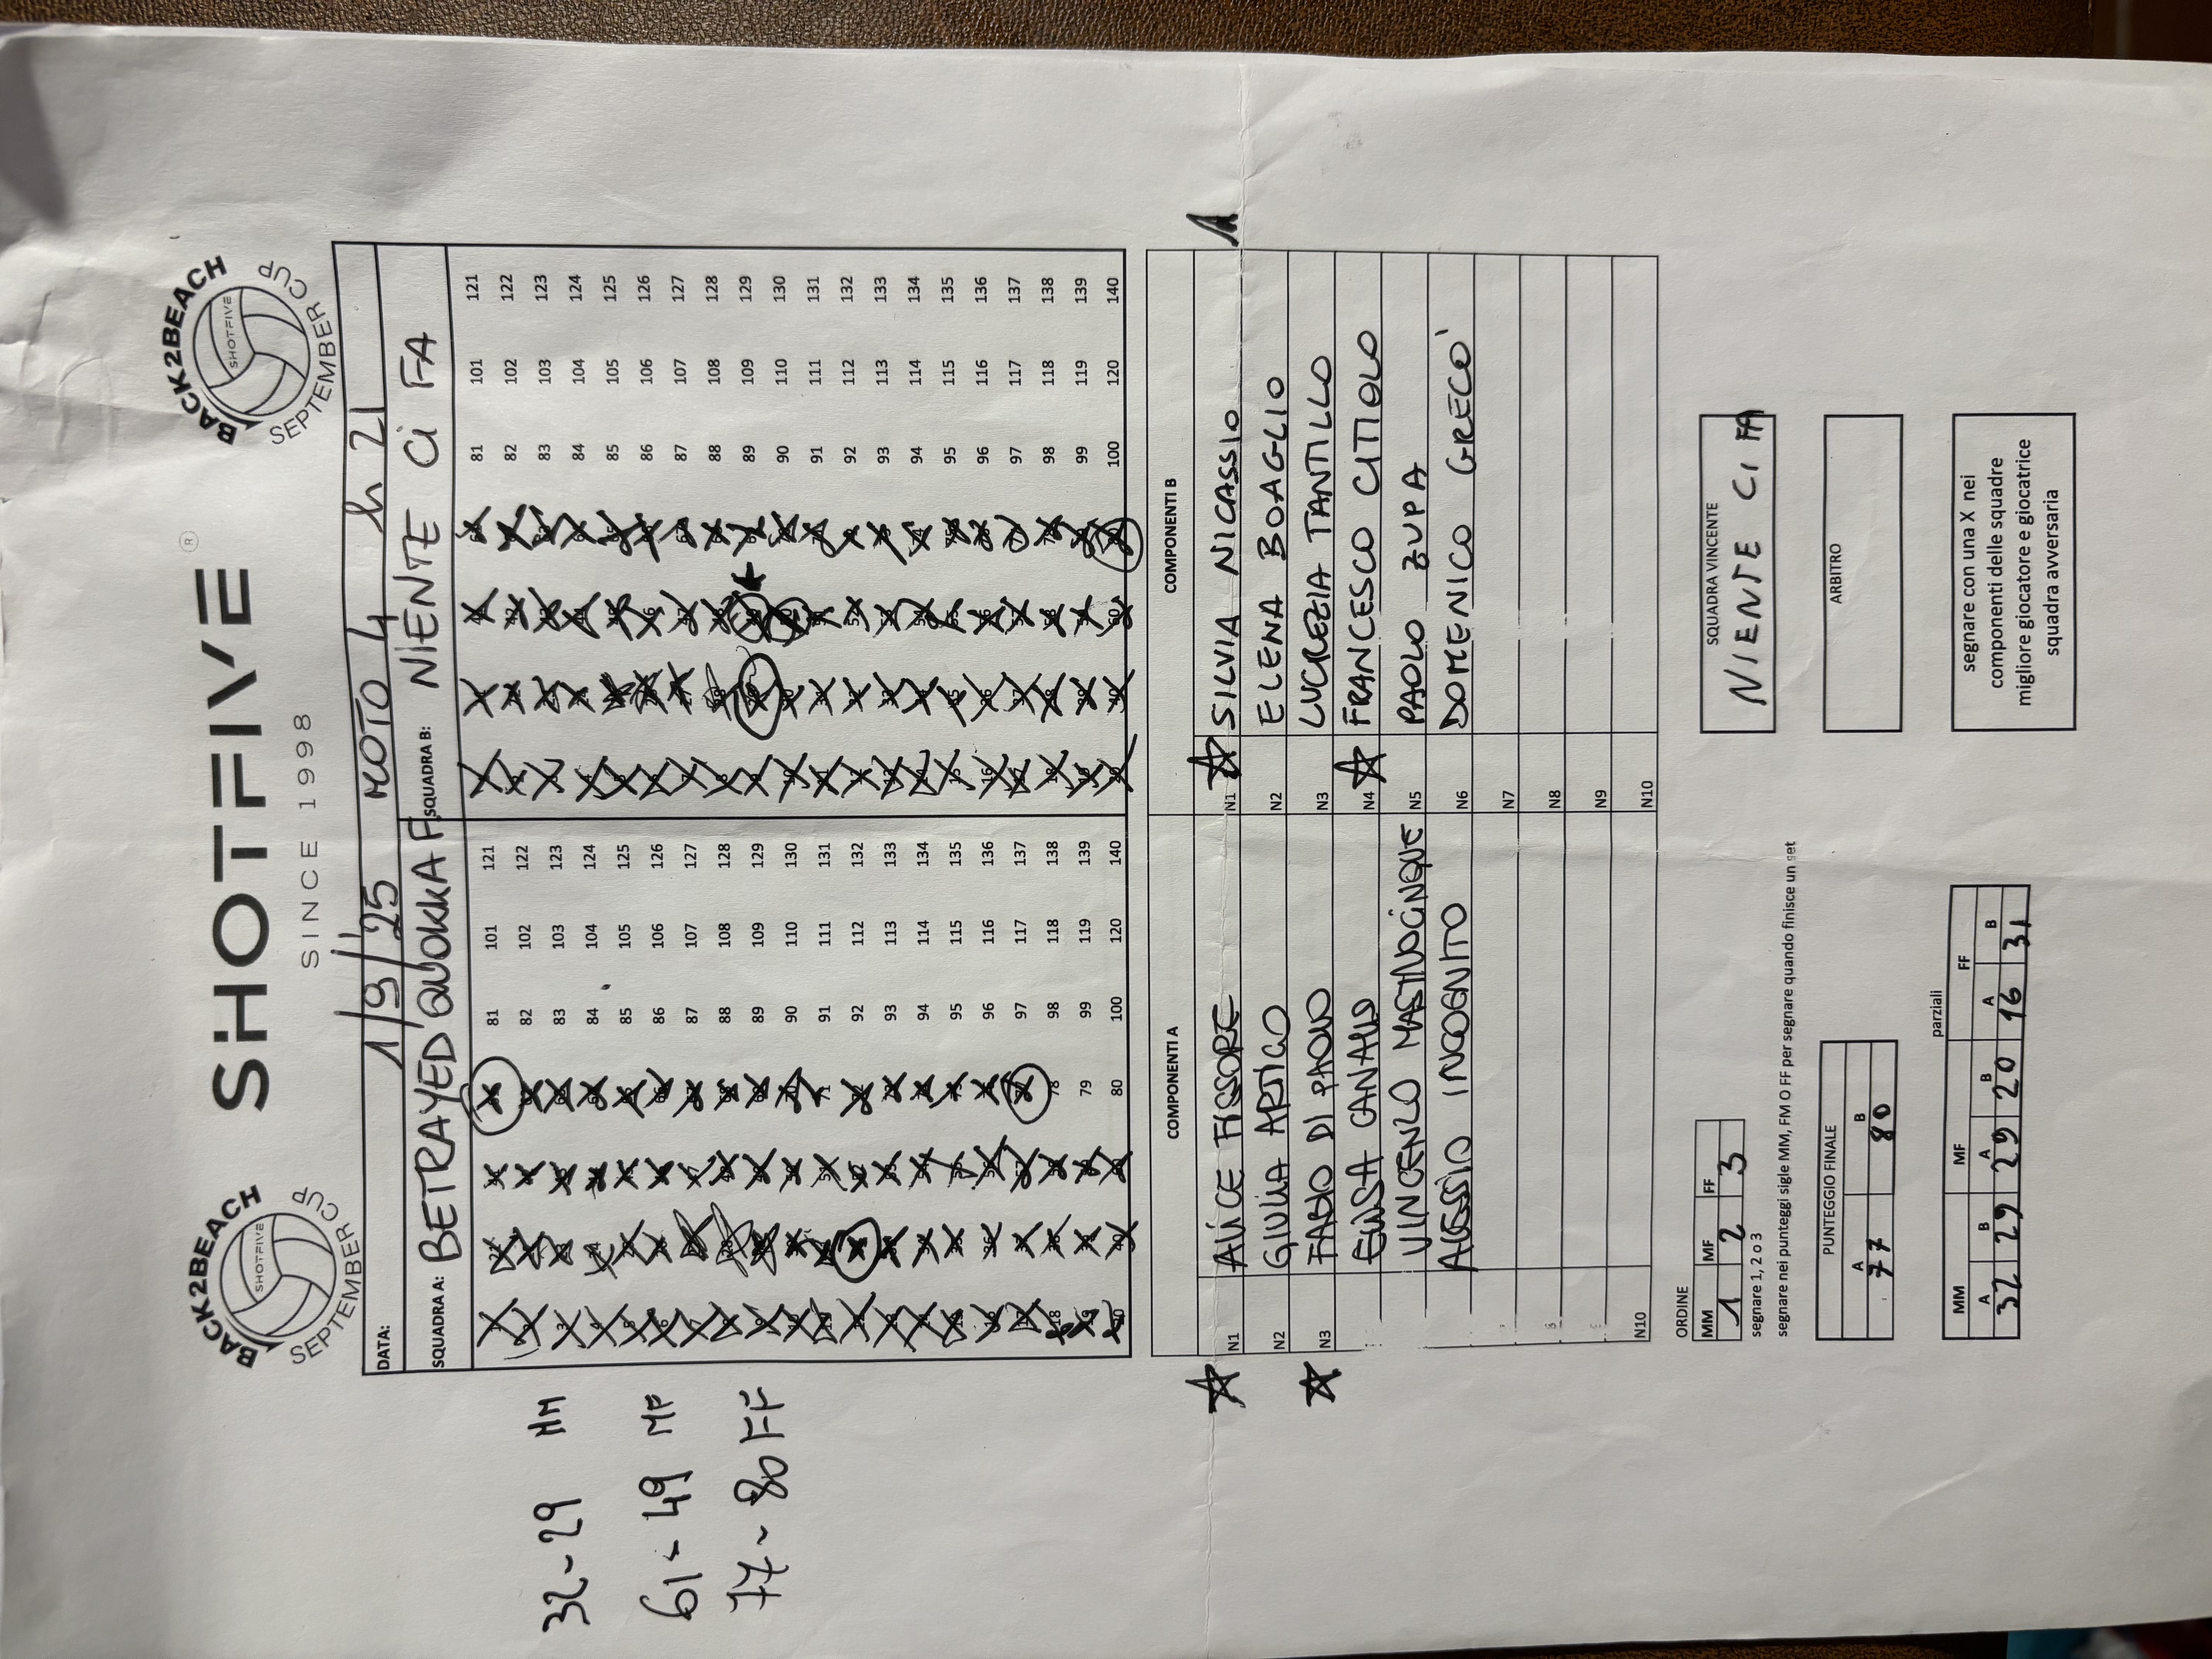 BACK2BEACH
SHOTFIVE
SEPTEMBER CUP
SHOTFIVE ®
SINCE 1998
BACK2BEACH
SHOTFIVE
SEPTEMBER CUP
DATA: 1/9/25 MOTO 4 h 21
SQUADRA A: BETRAYED QUOKKA F. SQUADRA B: NIENTE Ci FA
81 101 121 81 101 121
82 102 122 82 102 122
83 103 123 83 103 123
84 104 124 84 104 124
85 105 125 85 105 125
86 106 126 86 106 126
87 107 127 87 107 127
88 108 128 88 108 128
89 109 129 89 109 129
90 110 130 90 110 130
91 111 131 91 111 131
92 112 132 92 112 132
93 113 133 93 113 133
94 114 134 94 114 134
95 115 135 95 115 135
96 116 136 96 116 136
97 117 137 97 117 137
78 98 118 138 98 118 138
79 99 119 139 99 119 139
80 100 120 140 100 120 140
32-29 MM
61-49 MF
77-80 FF
COMPONENTI A COMPONENTI B
N1 ALICE FISSORE N1 SILVIA NICASSIO 1
N2 GIULIA ARTICO N2 ELENA BOAGLIO
N3 FABIO DI PAOLO N3 LUCREZIA TANTILLO
ELISA CANALIS N4 FRANCESCO CITIOLO
VINCENZO MASTNOCINQUE N5 PAOLO ZUPA
ALESSIO INCOGNITO N6 DOMENICO GRECO'
N7
N8
N9
N10 N10
ORDINE
MM MF FF
1 2 3
segnare 1, 2 o 3
segnare nei punteggi sigle MM, FM O FF per segnare quando finisce un set
SQUADRA VINCENTE
NIENTE CI FA
PUNTEGGIO FINALE
A B
77 80
ARBITRO
parziali
MM MF FF
A B A B A B
32 29 29 20 16 31
segnare con una X nei
componenti delle squadre
migliore giocatore e giocatrice
squadra avversaria